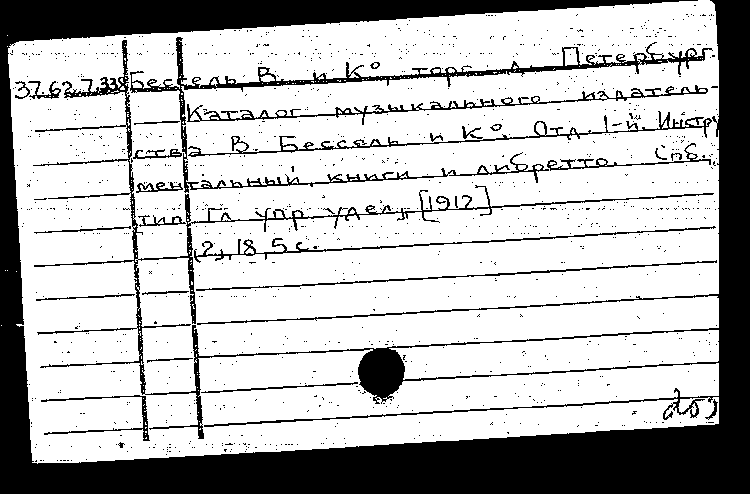 37.62.7.338 Бессель, В. и К°, торг. д. Петербург.
Каталог музыкального издатель-
ства В. Бессель и К°. Отд. 1-й. Инстру
ментальный, книги и либретто. Спб.,
тип. Гл. упр. уделов, [1912]
[2], 18, 5 с.